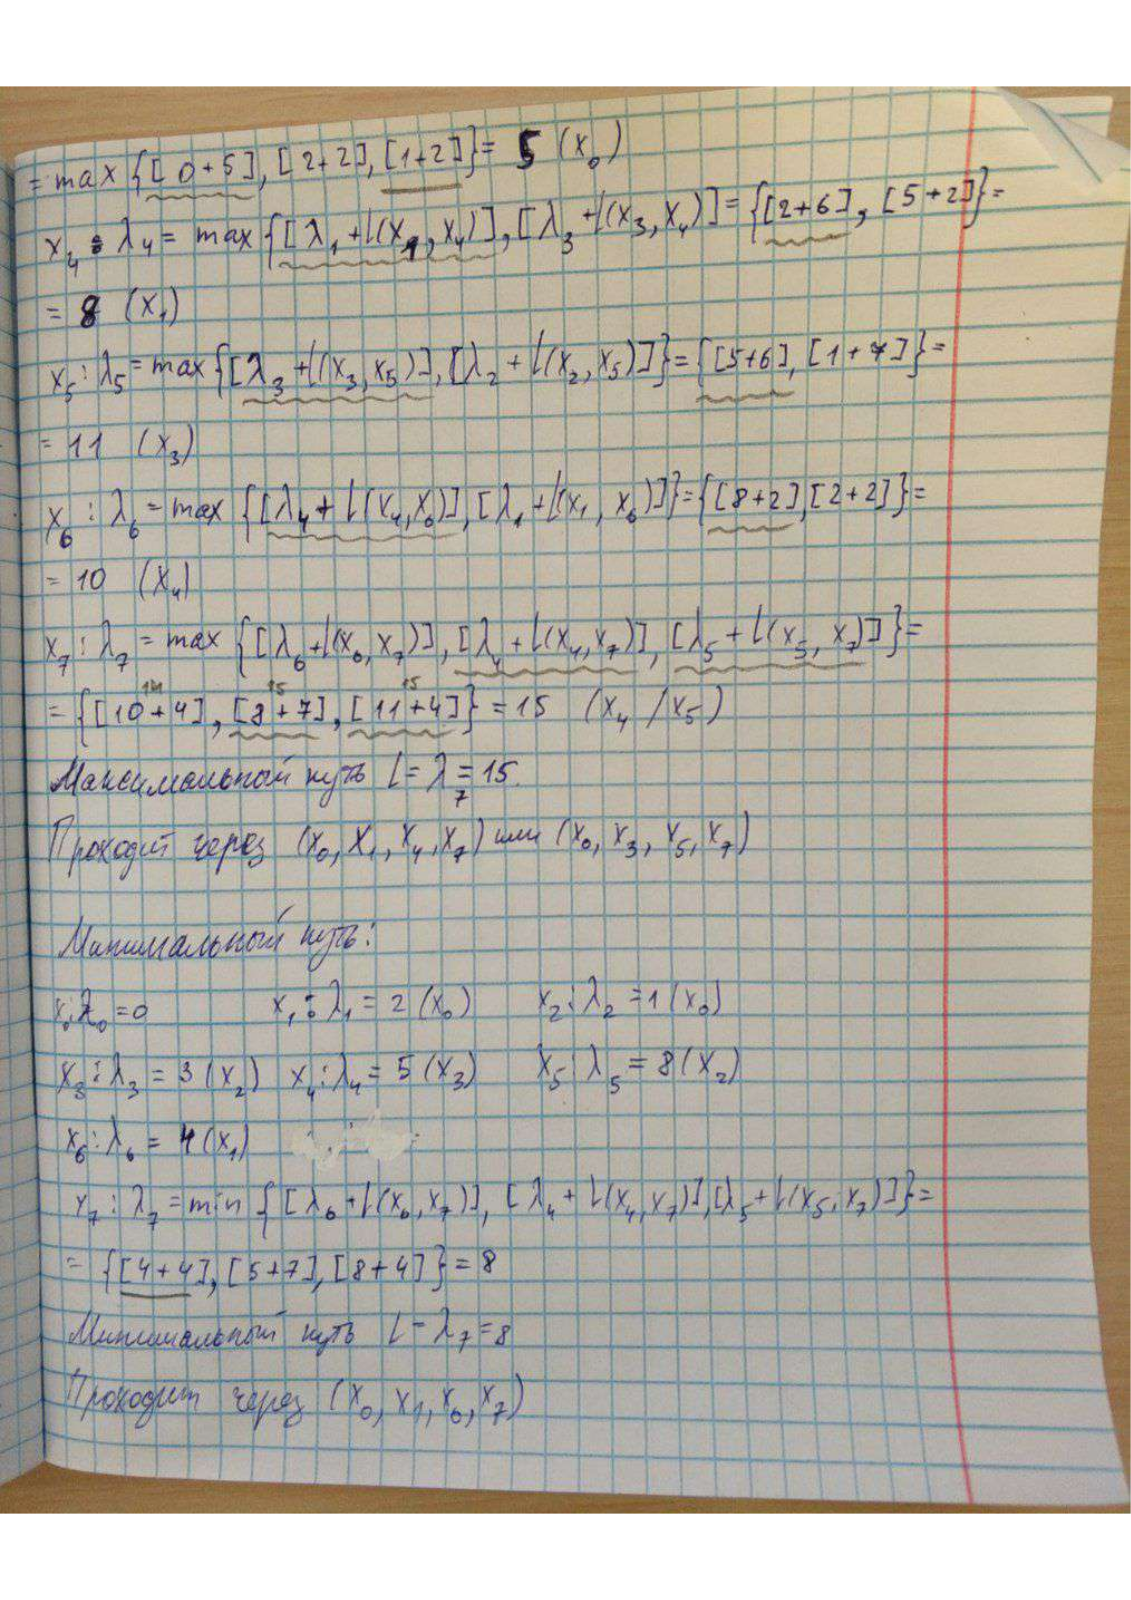 = max {[0+5], [2+2], [1+2]} = 5 (x₀)
x₄ : λ₄ = max {[λ₁ + l(x₁, x₄)], [λ₃ + l(x₃, x₄)] = {[2+6], [5+2]} =
= 8 (x₁)
x₅ : λ₅ = max {[λ₃ + l(x₃, x₅)], [λ₂ + l(x₂, x₅)]} = {[5+6], [1+7]} =
= 11 (x₃)
x₆ : λ₆ = max {[λ₄ + l(x₄, x₆)], [λ₁ + l(x₁, x₆)]} = {[8+2], [2+2]} =
= 10 (x₄)
x₇ : λ₇ = max {[λ₆ + l(x₆, x₇)], [λ₄ + l(x₄, x₇)], [λ₅ + l(x₅, x₇)]} =
14 15 15
= {[10+4], [8+7], [11+4]} = 15 (x₄ / x₅)
Максимальный путь L = λ₇ = 15.
Проходит через (x₀, x₁, x₄, x₇) или (x₀, x₃, x₅, x₇)
Минимальный путь:
x₀: λ₀ = 0 x₁ : λ₁ = 2 (x₀) x₂ : λ₂ = 1 (x₀)
x₃ : λ₃ = 3 (x₂) x₄ : λ₄ = 5 (x₃) x₅ : λ₅ = 8 (x₂)
x₆ : λ₆ = 4 (x₁)
x₇ : λ₇ = min {[λ₆ + l(x₆, x₇)], [λ₄ + l(x₄, x₇)], [λ₅ + l(x₅, x₇)]} =
= {[4+4], [5+7], [8+4]} = 8
Минимальный путь L = λ₇ = 8
Проходит через (x₀, x₁, x₆, x₇)